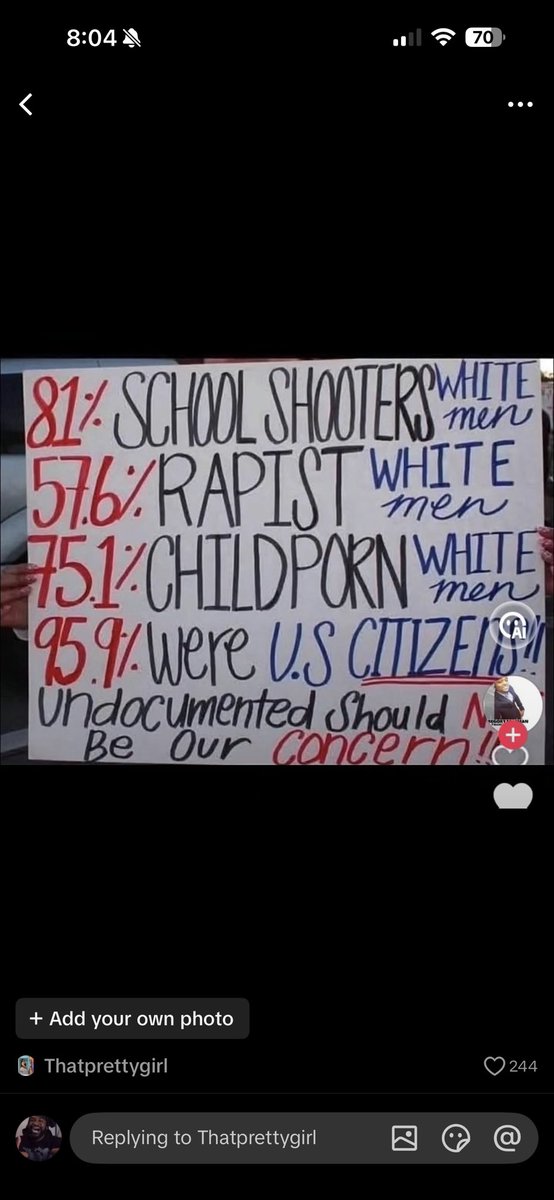 8:04
70
81% SCHOOL SHOOTERS WHITE men
57.6% RAPIST WHITE men
75.1% CHILD PORN WHITE men
95.9% were U.S CITIZENS!!
Undocumented Should
Be Our Concern!!
AI
+ Add your own photo
Thatprettygirl
244
Replying to Thatprettygirl